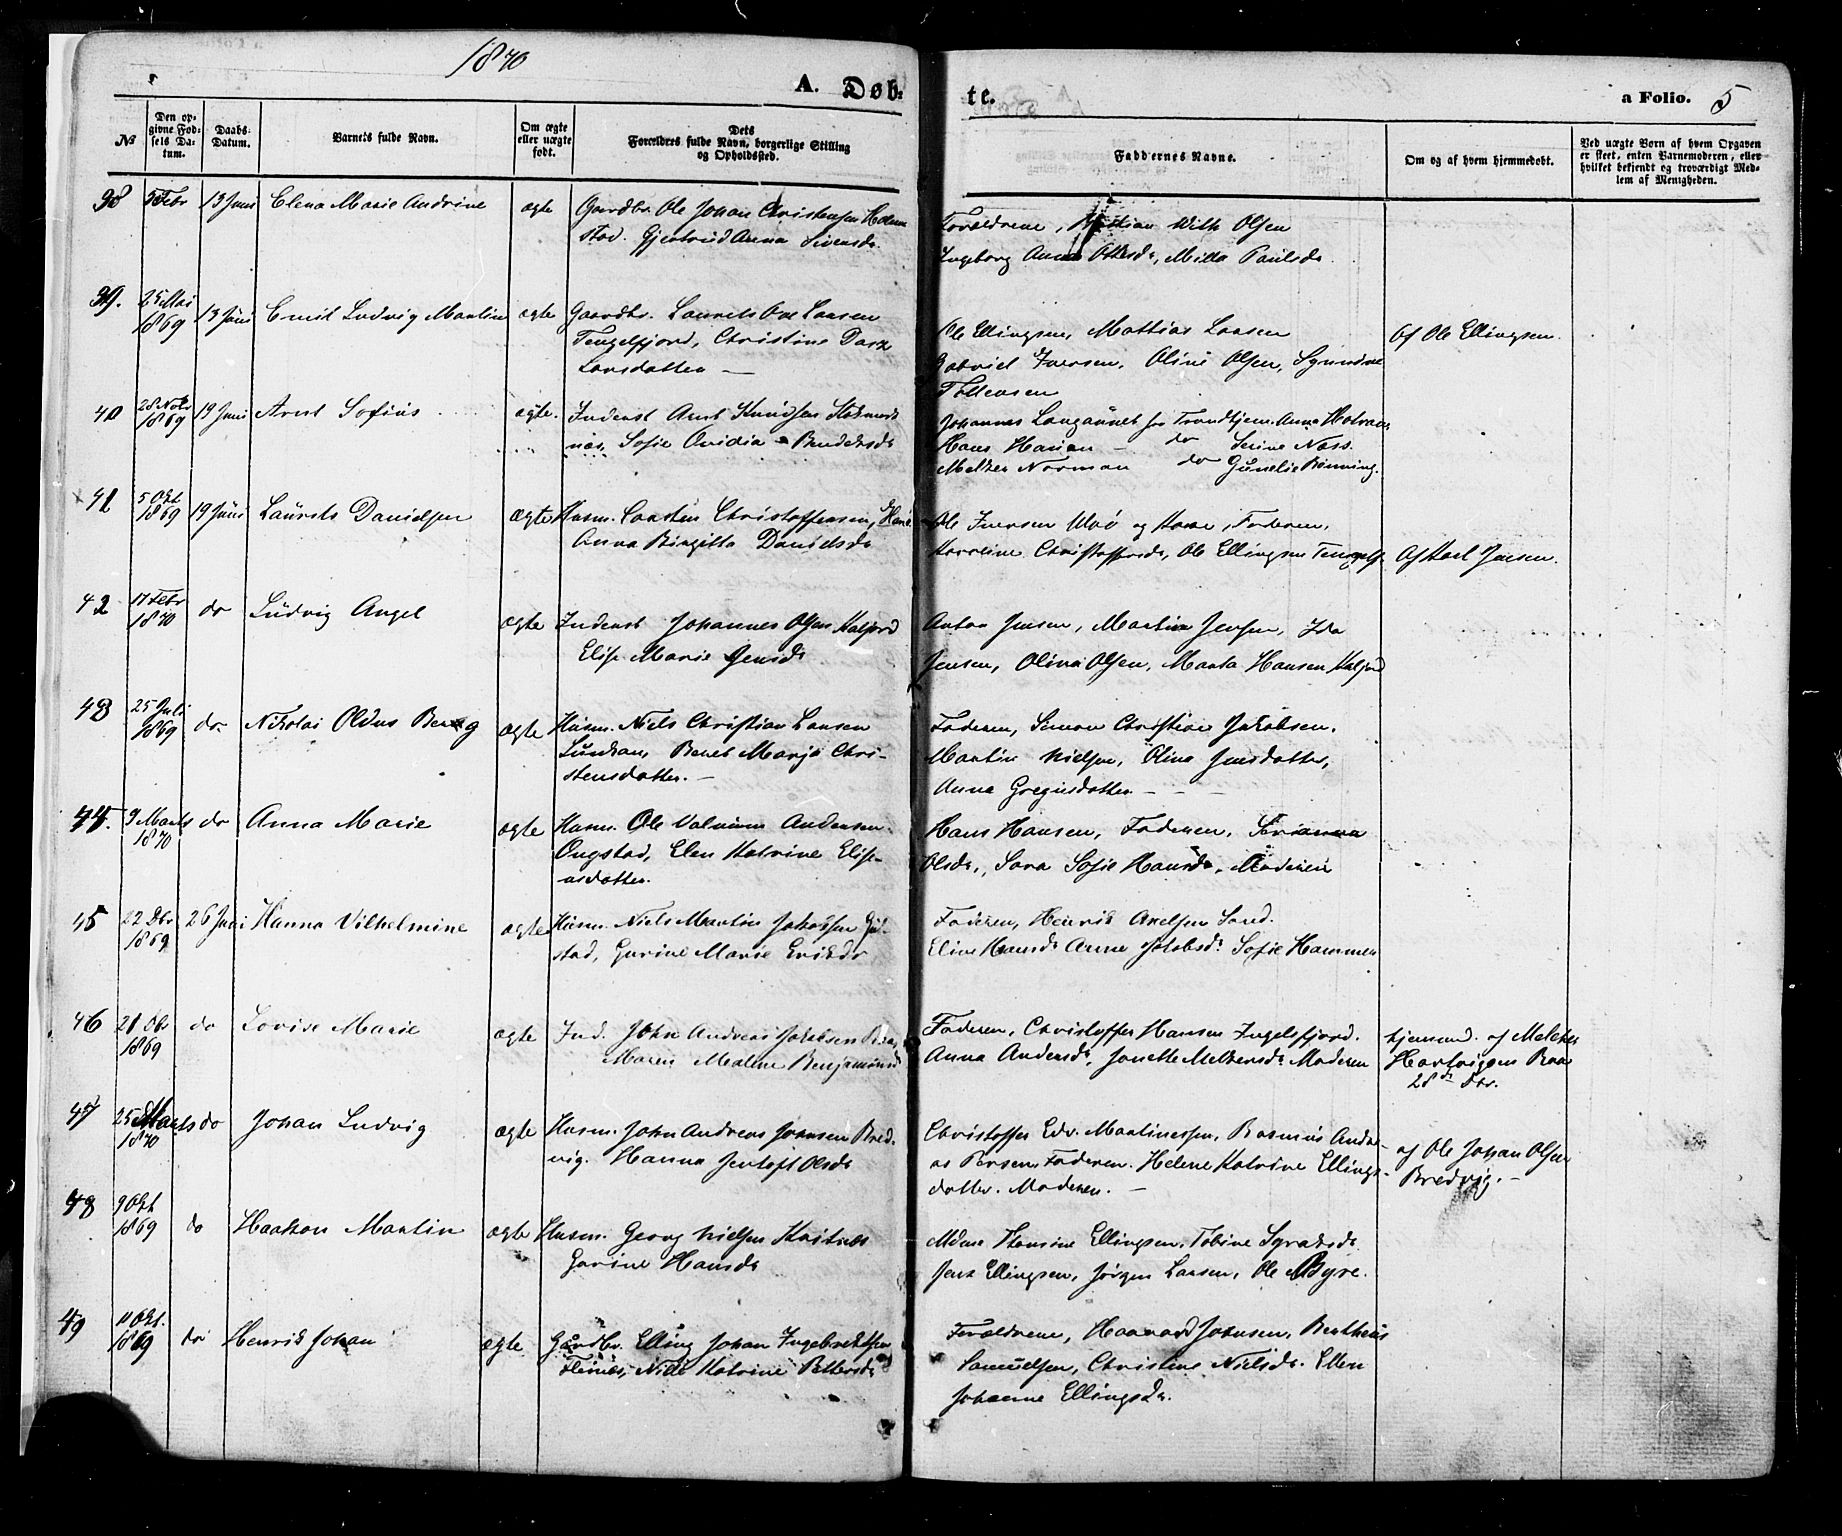 1870
A. Døb-
te.
a Folio. 5
№
Den op-
givne Fød-
sels Da-
tum.
Daabs-
Datum.
Barnets fulde Navn.
Om ægte
eller uægte
født.
Dets
Forældres fulde Navn, borgerlige Stilling
og Opholdssted.
Faddernes Navne.
Om og af hvem hjemmedøbt.
Ved uægte Børn af hvem Opgaven
er skeet, enten Barnemoderen, eller
hvilket bekjendt og troværdigt Med-
lem af Menigheden.
38 Febr 13 Juni Elena Marie Andrine ægte Gaardbr. Ole Johan Christensen
Gjertrud Anna Sivertsdr
Forældrene, Witk Olsen
Ingeborg Anna Olesdr, Milla Paulsdr.
39. 25 Mai
1869 13 Juni Emil Ludvig Martin ægte Gaardbr. Laurits Ove Larsen
Tengelfjord, Christine
Larsdatter —
Ole Ellingsen, Mattias Larsen
Gabriel Iversen, Oline Olsen,
Af Ole Ellingsen.
40 28 Nobr
1869 19 Juni Arnt Sofius ægte. Inderst Arnt Knudsen
Sofie Ovidia
Johannes Langaunet fra Trondhjem. Anna
Hans — do Serine Næss.
Melker Norman do
41 5 Okt
1869 19 Juni Laurits Danielsen Ægte Husm. Carsten Christoffersen,
Anna Birgitta Danielsdr
Ole Iversen og Kone, Faderen,
Karoline Christoffersdr, Ole Ellingsen
Af Karl Jensen.
42 17 Febr
1870 do Ludvig Angel ægte Inderst Johannes Olsen Kaljord
Elise Marie Jensdr
Anton Jensen, Martin Jensen, Ida
Jensen, Olina Olsen, Marta Hansen Kaljord
43 25 Juli
1869 do Nikolai Oldus Berg ægte Husm. Niels Christian Larsen
Beret Marja Chri-
stensdatter. —
Faderen, Simon Christian Jakobsen.
Martin Nielsen, Olina Jensdatter,
Anna Gregusdatter - - -
44. 9 Marts
1870 do Anna Marie ægte Husm. Ole Andersen
Ongstad, Elen Katrine Elise-
usdatter.
Hans Hansen, Faderen,
Olsdr., Sara Sofie Hansdr. Moderen
45 22 Dbr
1869 26 Juni Hanna Vilhelmine ægte Husm. Niels Martin
stad, Gurine Marie Eriksdr
Faderen, Henrik Axelsen Sand.
Eline Hansdr Anne Jakobsdr. Sofie Hammer
46 21 Dbr
1869 do Lovise Marie ægte Ind. John Andreas Jakobsen
Maren Benjaminsd
Faderen, Christoffer Hansen Ingelsfjord.
Anna Andersdr, Jonette Melkersdr. Moderen
hjemmed. af Melcher
Hartvigsen
28de Dbr.
47 25 Marts
1870 do Johan Ludvig ægte Husm. John Andreas Johnsen Bred-
vig. Hanna Jentoft Olsdr
Christoffer Edv. Martinussen, Rasmus Andre-
as Faderen. Helene Katrine Ellings-
datter. Moderen. —
af Ole Johan Olsen
Bredvig. —
48 9 Okt
1869 do Haakon Martin ægte Husm. Georg Nielsen
Gurine Hansdr
Ellingsen, Tobine
Jens Ellingsen, Jørgen Larsen, Ole Myre.
49 11 Okt.
1869 do Henrik Johan ægte Gaardbr. Elling Johan Ingebrektsen
Katrine Pettersdr
Forældrene, Haavard Johnsen, Bertheus
Samuelsen, Christine Nielsdr. Ellen
Johanne Ellingsdr.